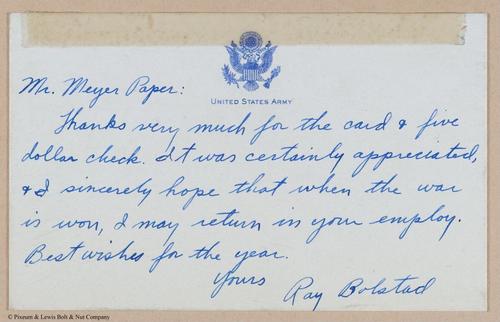 UNITED STATES ARMY
Mr. Meyer Paper:
Thanks very much for the card & five
dollar check. It was certainly appreciated,
& I sincerely hope that when the war
is won, I may return in your employ.
Best wishes for the year.
Yours
Ray Bolstad
© Pixeum & Lewis Bolt & Nut Company